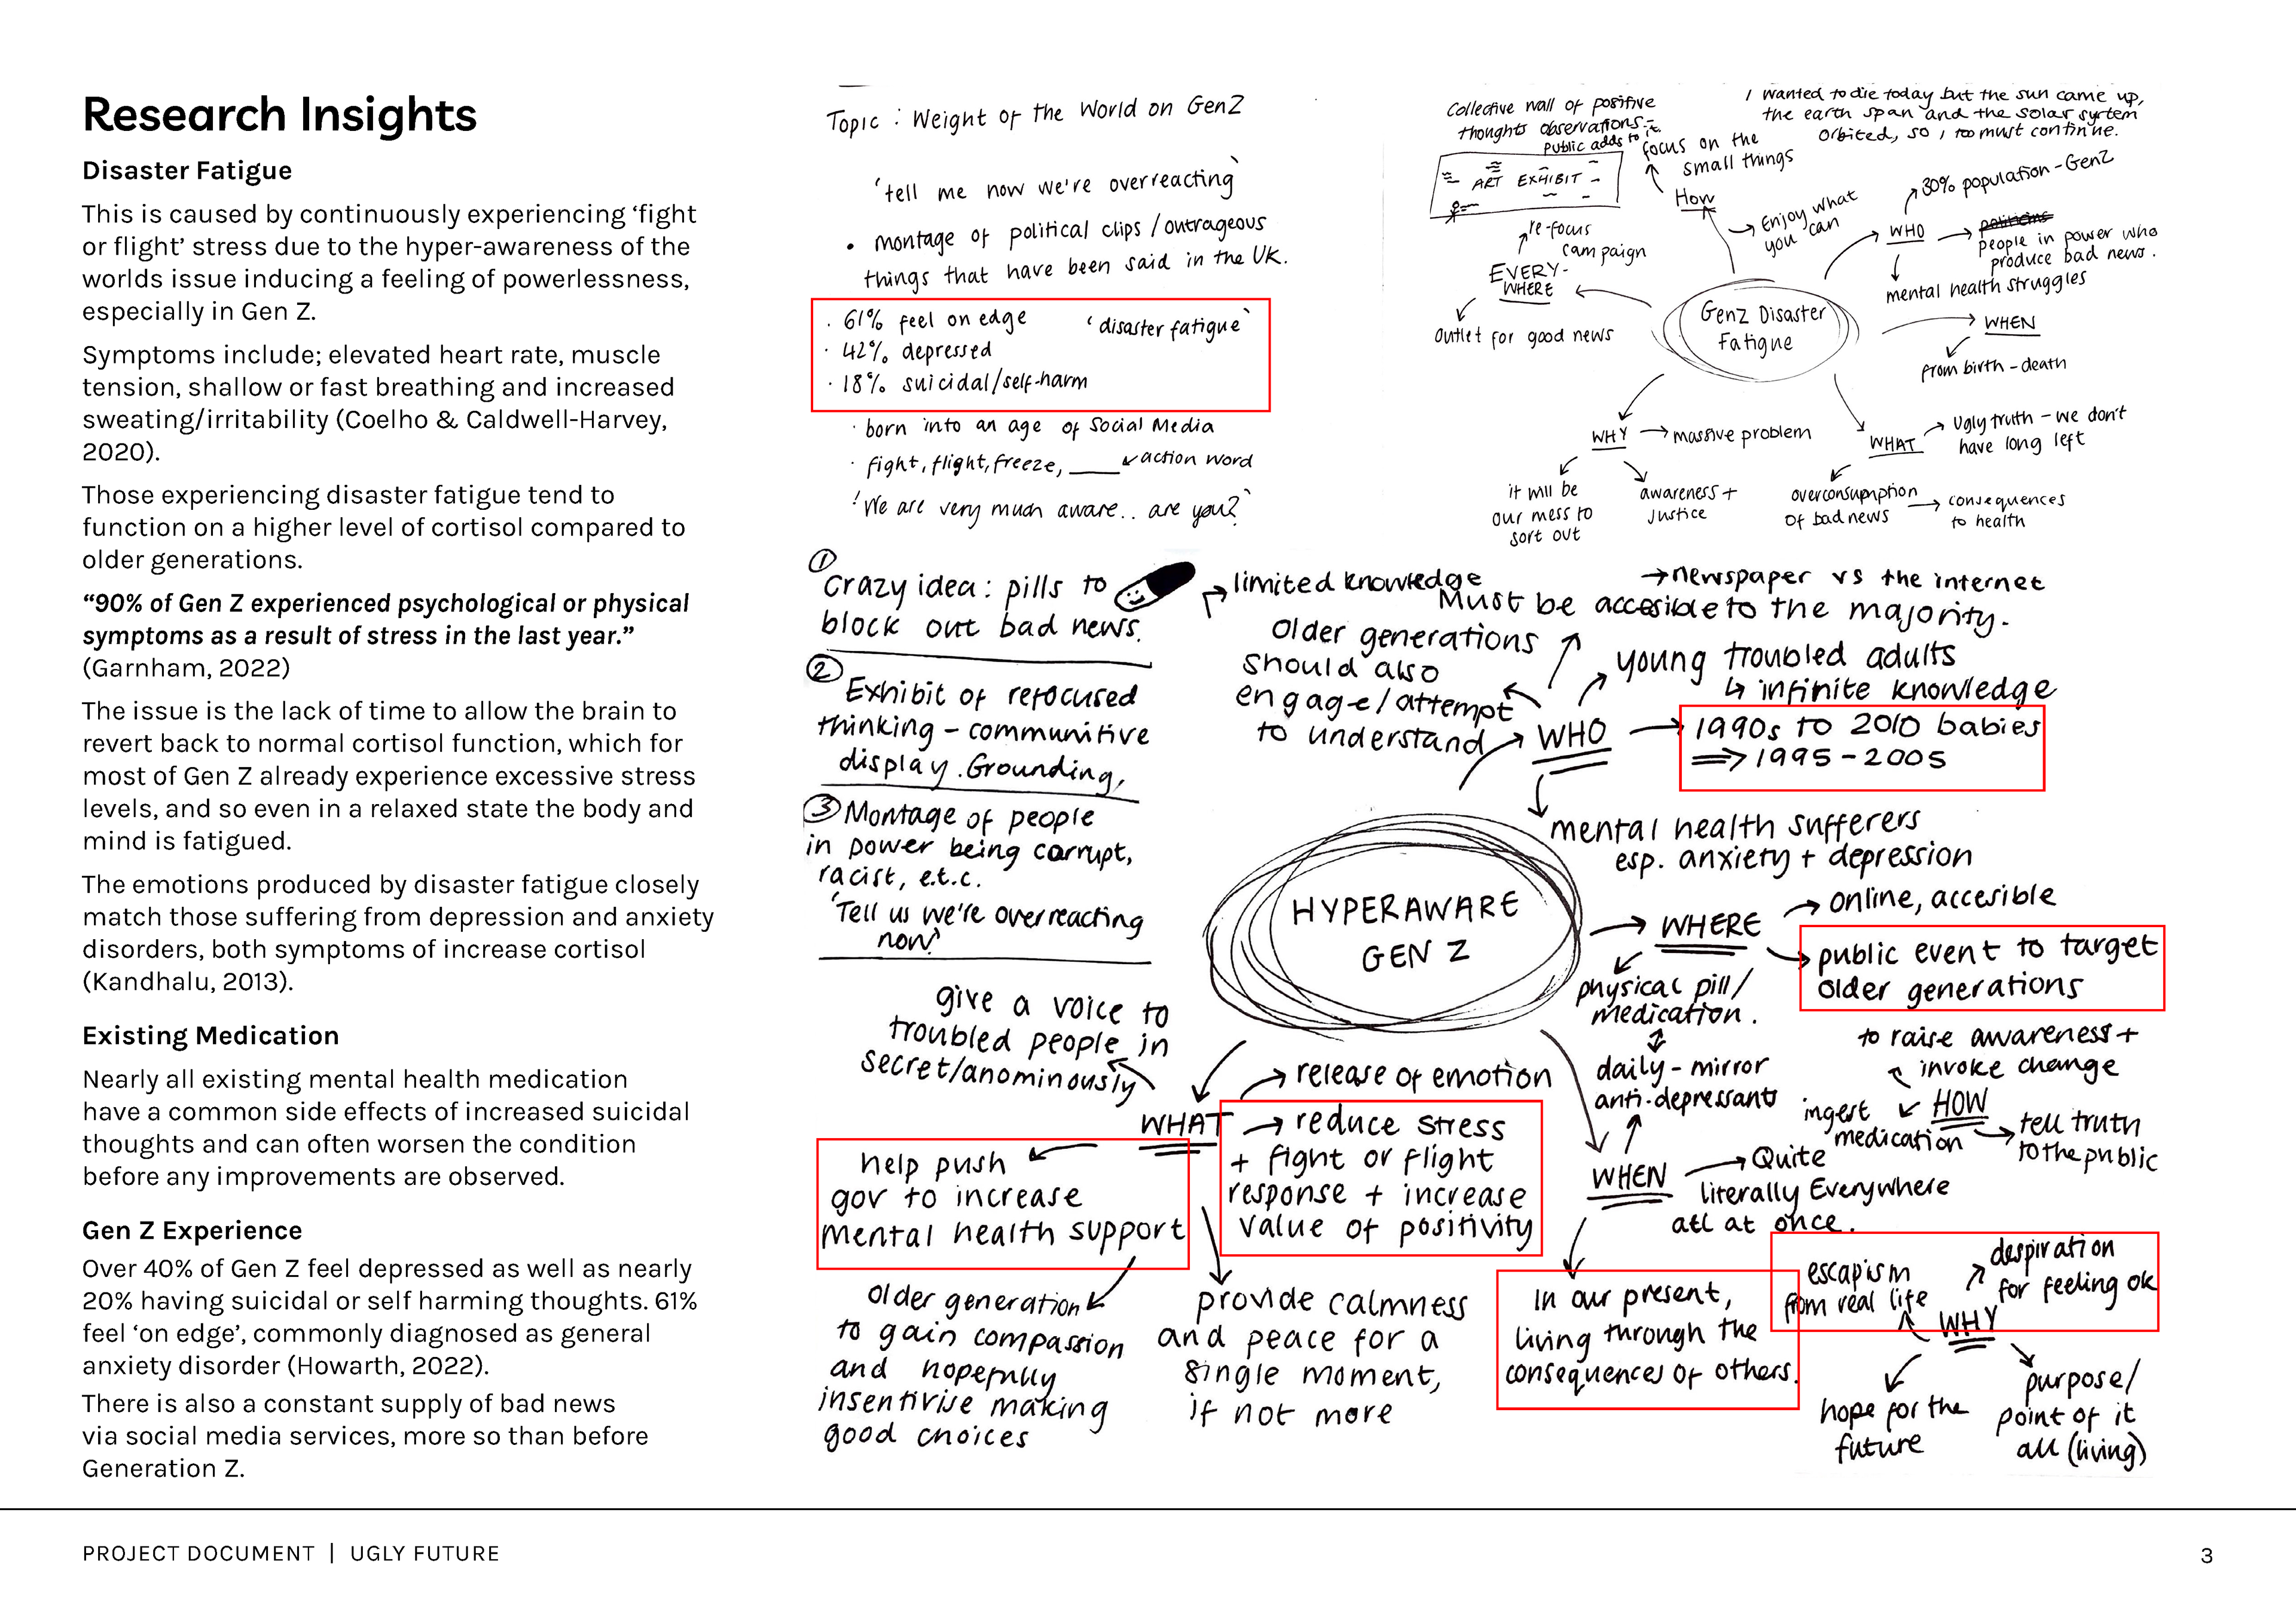 Research Insights
Disaster Fatigue
This is caused by continuously experiencing ‘fight
or flight’ stress due to the hyper-awareness of the
worlds issue inducing a feeling of powerlessness,
especially in Gen Z.
Symptoms include; elevated heart rate, muscle
tension, shallow or fast breathing and increased
sweating/irritability (Coelho & Caldwell-Harvey,
2020).
Those experiencing disaster fatigue tend to
function on a higher level of cortisol compared to
older generations.
“90% of Gen Z experienced psychological or physical
symptoms as a result of stress in the last year.”
(Garnham, 2022)
The issue is the lack of time to allow the brain to
revert back to normal cortisol function, which for
most of Gen Z already experience excessive stress
levels, and so even in a relaxed state the body and
mind is fatigued.
The emotions produced by disaster fatigue closely
match those suffering from depression and anxiety
disorders, both symptoms of increase cortisol
(Kandhalu, 2013).
Existing Medication
Nearly all existing mental health medication
have a common side effects of increased suicidal
thoughts and can often worsen the condition
before any improvements are observed.
Gen Z Experience
Over 40% of Gen Z feel depressed as well as nearly
20% having suicidal or self harming thoughts. 61%
feel ‘on edge’, commonly diagnosed as general
anxiety disorder (Howarth, 2022).
There is also a constant supply of bad news
via social media services, more so than before
Generation Z.
Topic : Weight of the World on GenZ
‘tell me now we're overreacting’
• montage of political clips / outrageous
things that have been said in the UK.
· 61% feel on edge
‘disaster fatigue’
· 42% depressed
· 18% suicidal/self-harm
· born into an age of Social Media
· fight, flight, freeze, ____ ↙ action word
‘We are very much aware.. are you?’
Collective wall of positive
thoughts observations -
public adds to it.
ART EXHIBIT
I wanted to die today but the sun came up,
the earth span and the solar system
orbited, so i too must continue.
focus on the
small things
How
Enjoy what
you can
30% population - GenZ
WHO
people in power who
produce bad news.
mental health struggles
re-focus
campaign
EVERY-
WHERE
outlet for good news
GenZ Disaster
Fatigue
WHEN
from birth - death
WHY
massive problem
it will be
our mess to
sort out
awareness +
justice
WHAT
Ugly truth - we don't
have long left
overconsumption
of bad news
consequences
to health
①
crazy idea: pills to
block out bad news.
②
Exhibit of refocused
thinking - communitive
display. Grounding,
③ Montage of people
in power being corrupt,
racist, e.t.c.
‘Tell us we're overreacting
now’
limited knowledge
→ newspaper vs the internet
Must be accesible to the majority.
older generations
should also
engage/attempt
to understand
young troubled adults
↳ infinite knowledge
WHO
1990s to 2010 babies
⇒ 1995 - 2005
mental health sufferers
esp. anxiety + depression
HYPERAWARE
GEN Z
WHERE
online, accesible
public event to target
older generations
physical pill/
medication.
daily - mirror
anti-depressants
to raise awareness +
invoke change
HOW
ingest
medication
tell truth
to the public
give a voice to
troubled people in
secret/anominously
release of emotion
WHAT
reduce stress
+ fight or flight
response + increase
value of positivity
help push
gov to increase
mental health support
older generation
to gain compassion
and hopefully
insentivise making
good choices
provide calmness
and peace for a
single moment,
if not more
WHEN
Quite
literally Everywhere
all at once.
In our present,
living through the
consequences of others.
escapism
from real life
despiration
for feeling ok
WHY
hope for the
future
purpose/
point of it
all (living)
PROJECT DOCUMENT | UGLY FUTURE
3